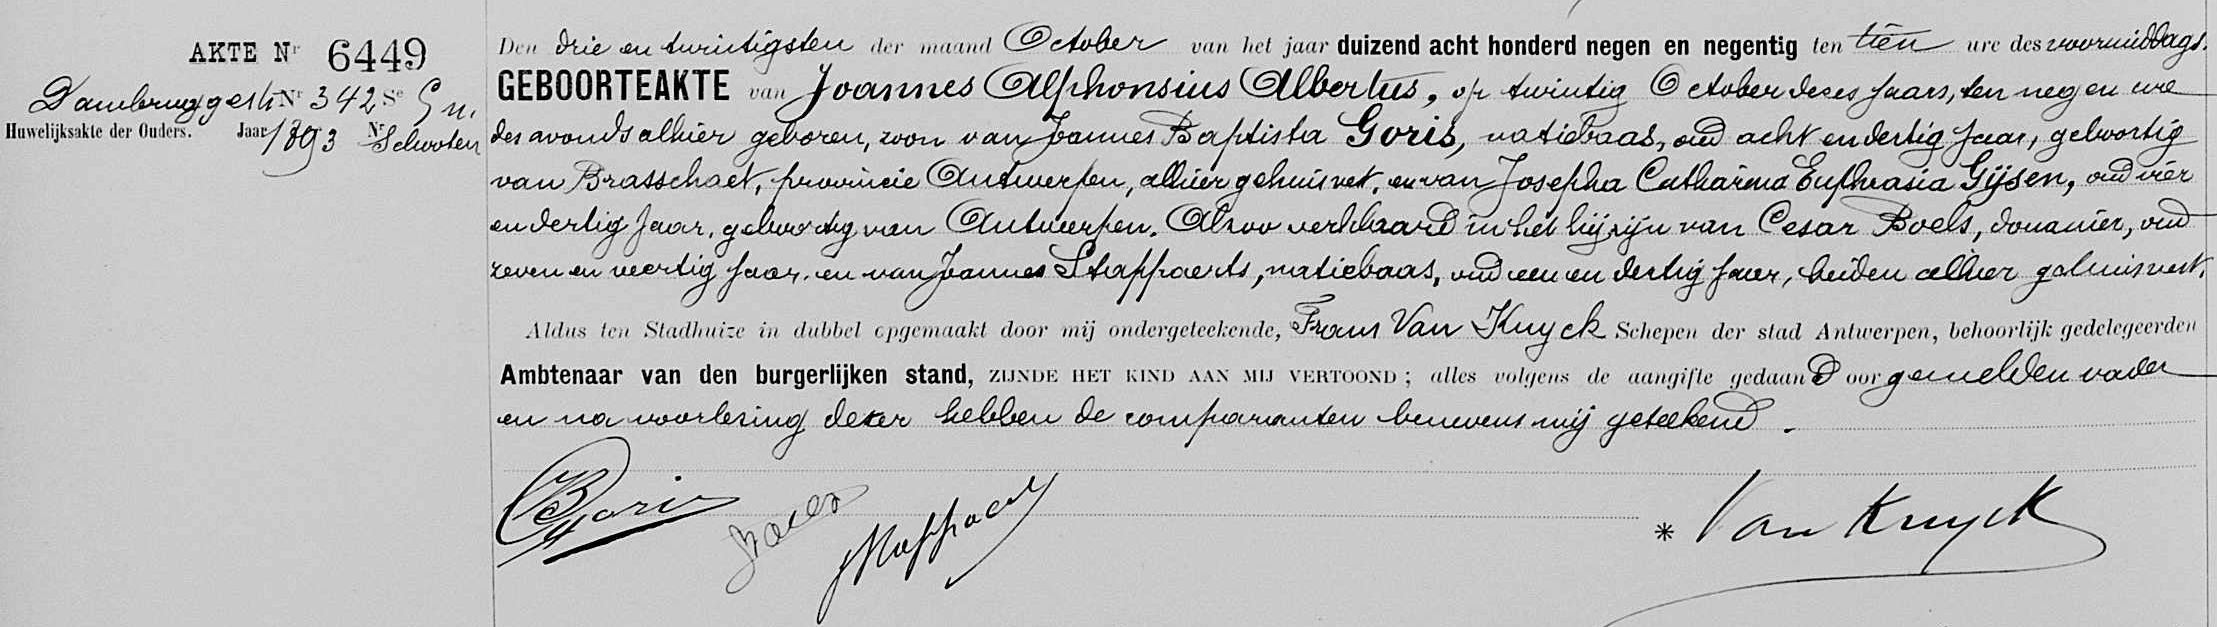 AKTE Nr 6449
Dambruggestr Nr 342 Se
Huwelijksakte der Ouders. Jaar 1893 Nr Schooten
Den drie en twintigsten der maand October van het jaar duizend acht honderd negen en negentig ten tien ure des voormiddags.
GEBOORTEAKTE van Joannes Alphonsius Albertus, op twintig October dezes jaars, ten negen ure
des avonds alhier geboren, zoon van Joannes Baptista Goris, natiebaas, oud acht en dertig jaar, geboortig
van Brasschaet, provincie Antwerpen, alhier gehuisvest, en van Josepha Catharina Euphrasia Gijsen, oud vier
en dertig jaar, geboortig van Antwerpen. Alzoo verklaard in het bijzijn van Cesar Boels, douanier, oud
zeven en veertig jaar, en van Joannes Stappaerts, natiebaas, oud een en dertig jaar, beiden alhier gehuisvest.
Aldus ten Stadhuize in dubbel opgemaakt door mij ondergeteekende, Frans Van Kuyck Schepen der stad Antwerpen, behoorlijk gedelegeerden
Ambtenaar van den burgerlijken stand, ZIJNDE HET KIND AAN MIJ VERTOOND; alles volgens de aangifte gedaan Door gemelden vader
en na voorlezing dezer hebben de comparanten benevens mij geteekend.
JB Goris Boels JStappaerts * Van Kuyck